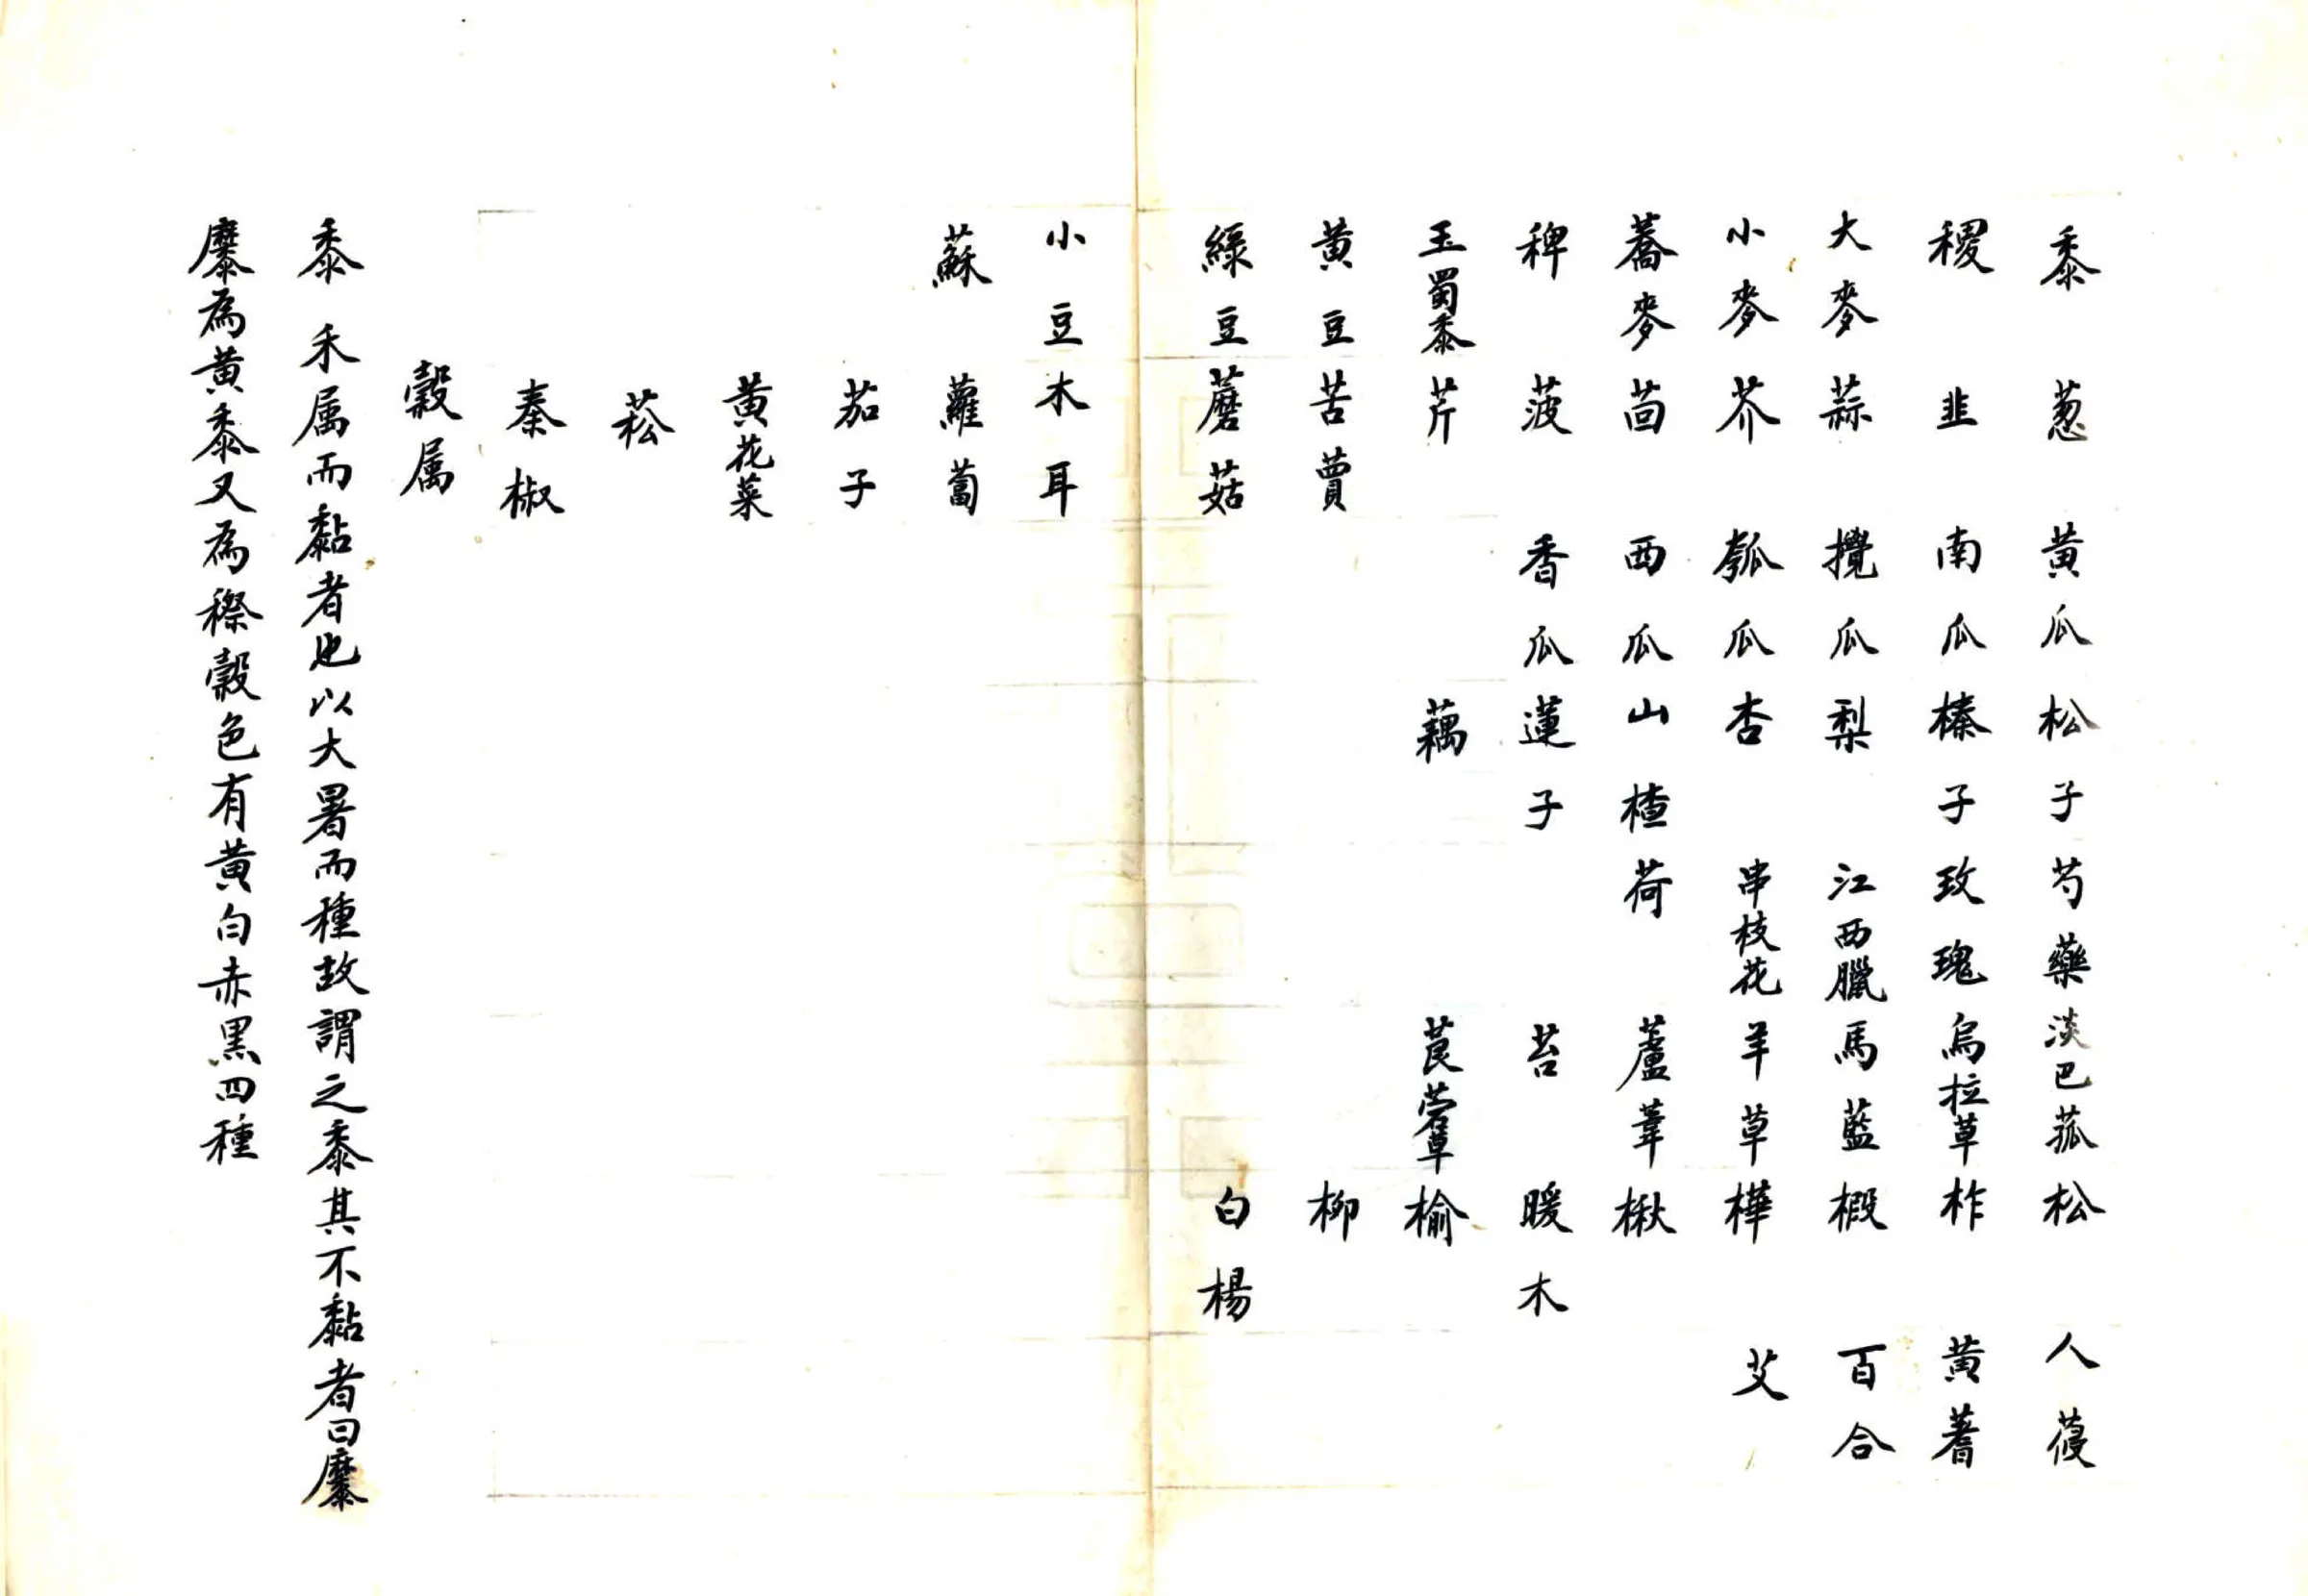 黍 葱 黄瓜 松子 芍藥 淡巴菰 松 人蓡
稷 韭 南瓜 榛子 玫瑰 烏拉草 柞 黄蓍
大麥 蒜 攪瓜 梨 江西臘 馬藍 椴 百合
小麥 芥 瓠瓜 杏 串枝花 羊草 樺 艾
蕎麥 茴 西瓜 山楂 荷 蘆葦 楸
稗 菠 香瓜 蓮子 苔 暖木
玉蜀黍 芹 藕 莨菪草 榆
黄豆 苦蕒 柳
綠豆 蘑菇 白楊
小豆 木耳
蘇 蘿蔔
茄子
黄花菜
菘
秦椒
穀属
黍 禾属而黏者也以大暑而種故謂之黍其不黏者曰穈
穈為黄黍又為穄穀色有黄白赤黑四種